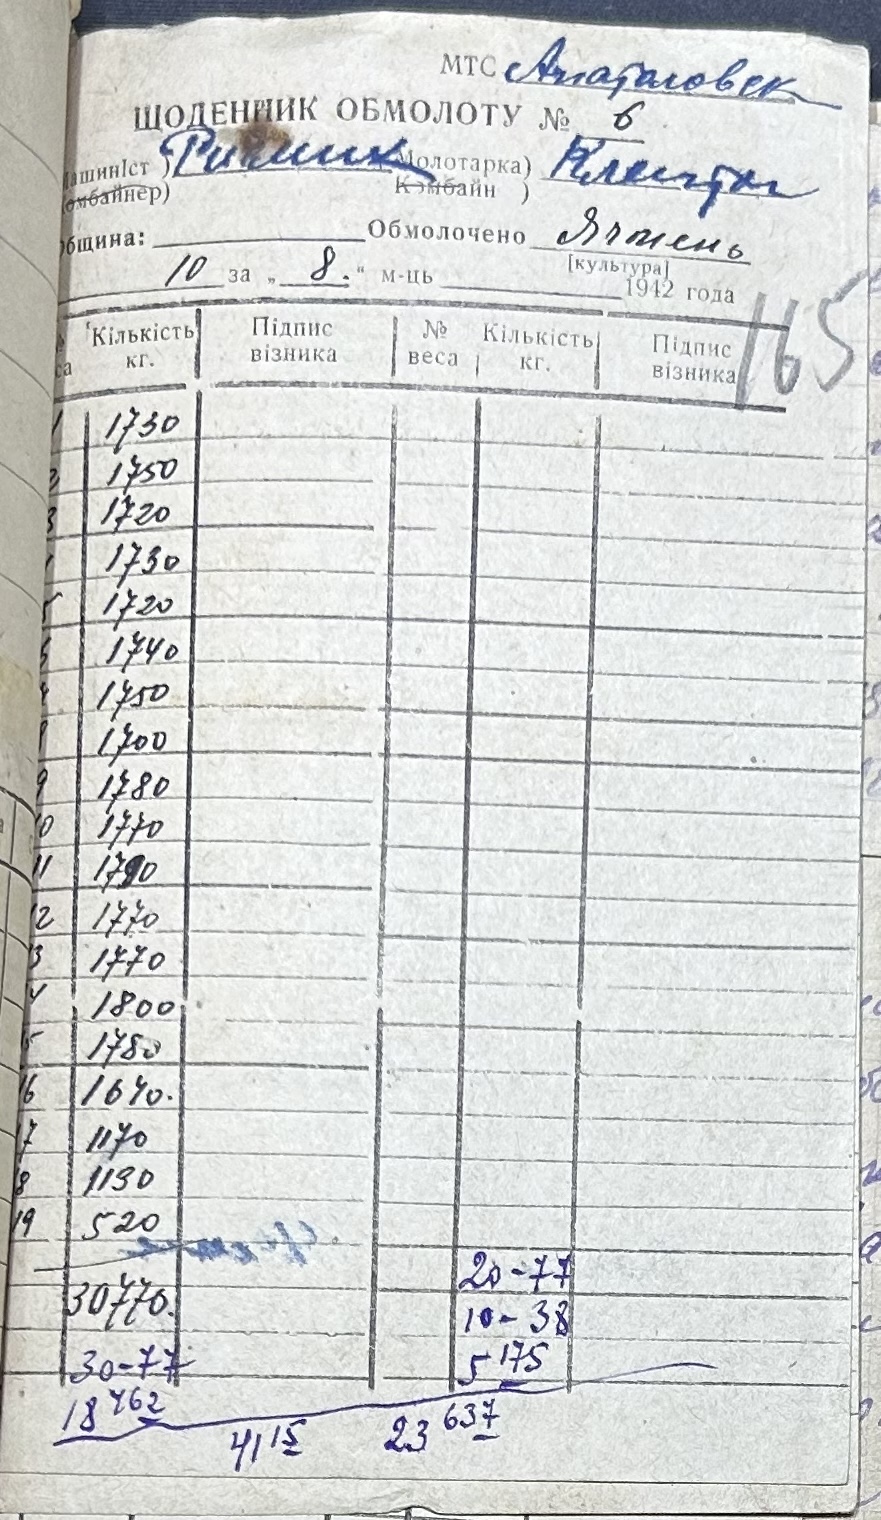 МТС
ЩОДЕННИК ОБМОЛОТУ № 6
ашиніст) Молотарка)
омбайнер) Комбайн )
бщина: Обмолочено Ячмень
[культура]
10 за „ 8. " м-ць 1942 года
165
Кількість кг. Підпис візника № веса Кількість кг. Підпис візника
1 1730
2 1750
3 1720
1730
5 1720
1740
1750
1700
9 1780
10 1770
11 1790
12 1770
13 1770
1800
1780
16 1640.
17 1170
18 1130
19 520
20-77
30770.
10-38
30-77
5 175
18 462
41 15 23 637